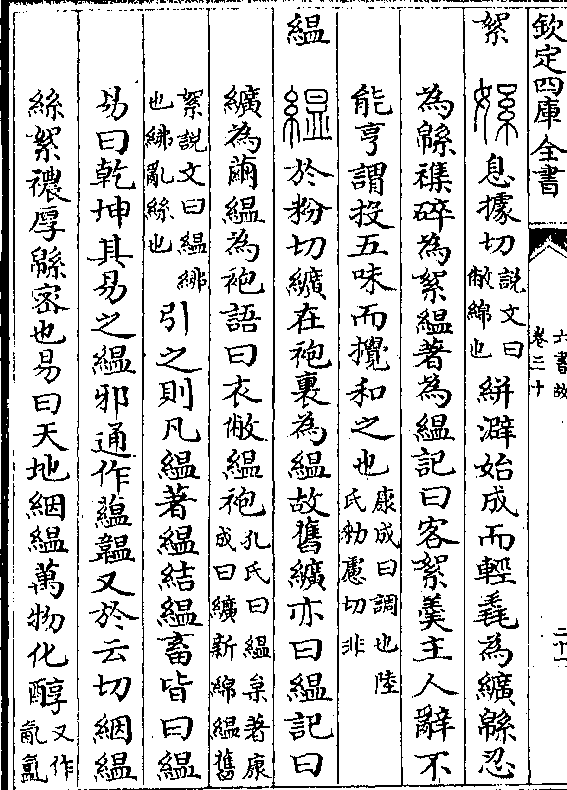 欽定四庫全書
六書故
卷三十
二十一
絮
息據切說文曰敝緜也絣澼始成而輕毳為纊緜忍
為緜襍碎為絮縕著為縕記曰客絮羹主人辭不
能亨謂投五味而攪和之也康成曰調也陸氏勑慮切非
縕
於粉切纊在袍裏為縕故舊纊亦曰縕記曰
纊為繭縕為袍語曰衣敝縕袍孔氏曰縕枲著康成曰纊新綿縕舊
絮說文曰縕紼也紼亂絲也引之則凡縕著縕結縕畜皆曰縕
易曰乾坤其易之縕邪通作藴韞又於云切絪縕
絲絮襛厚緜宻也易曰天地絪縕萬物化醇又作氤氳